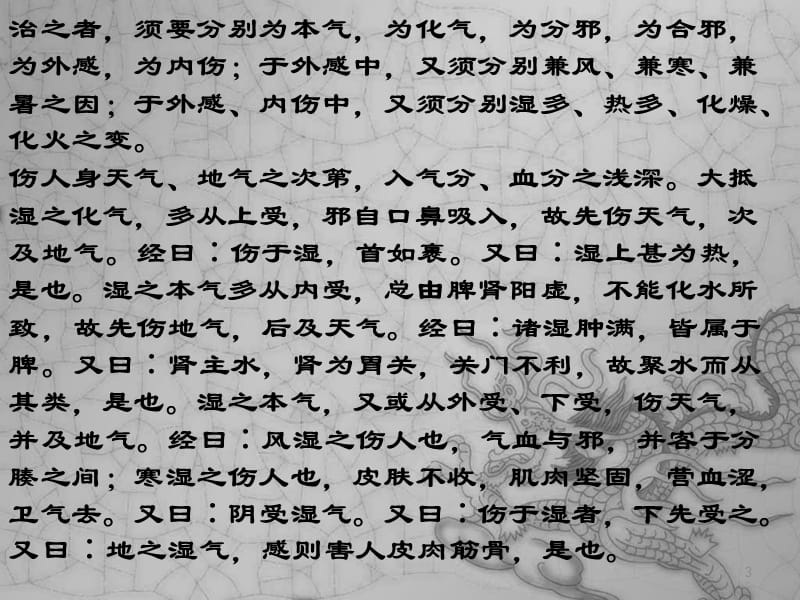 治之者，须要分别为本气，为化气，为分邪，为合邪，
为外感，为内伤；于外感中，又须分别兼风、兼寒、兼
暑之因；于外感、内伤中，又须分别湿多、热多、化燥、
化火之变。
伤人身天气、地气之次第，入气分、血分之浅深。大抵
湿之化气，多从上受，邪自口鼻吸入，故先伤天气，次
及地气。经曰∶伤于湿，首如裹。又曰∶湿上甚为热，
是也。湿之本气多从内受，总由脾肾阳虚，不能化水所
致，故先伤地气，后及天气。经曰∶诸湿肿满，皆属于
脾。又曰∶肾主水，肾为胃关，关门不利，故聚水而从
其类，是也。湿之本气，又或从外受、下受，伤天气，
并及地气。经曰∶风湿之伤人也，气血与邪，并客于分
腠之间；寒湿之伤人也，皮肤不收，肌肉坚固，营血涩，
卫气去。又曰∶阴受湿气。又曰∶伤于湿者，下先受之。
又曰∶地之湿气，感则害人皮肉筋骨，是也。
3